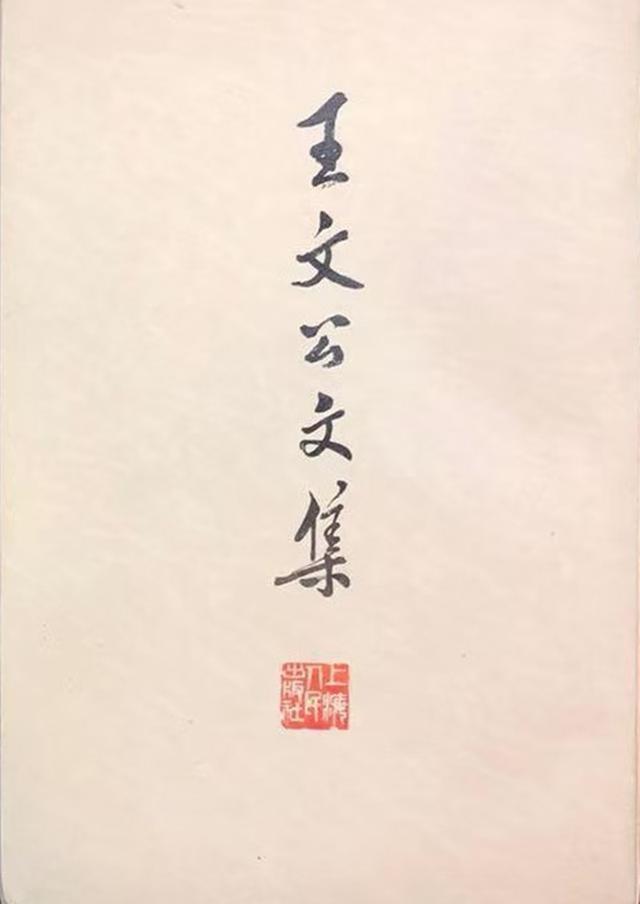 王文公文集
上海
人民
出版社